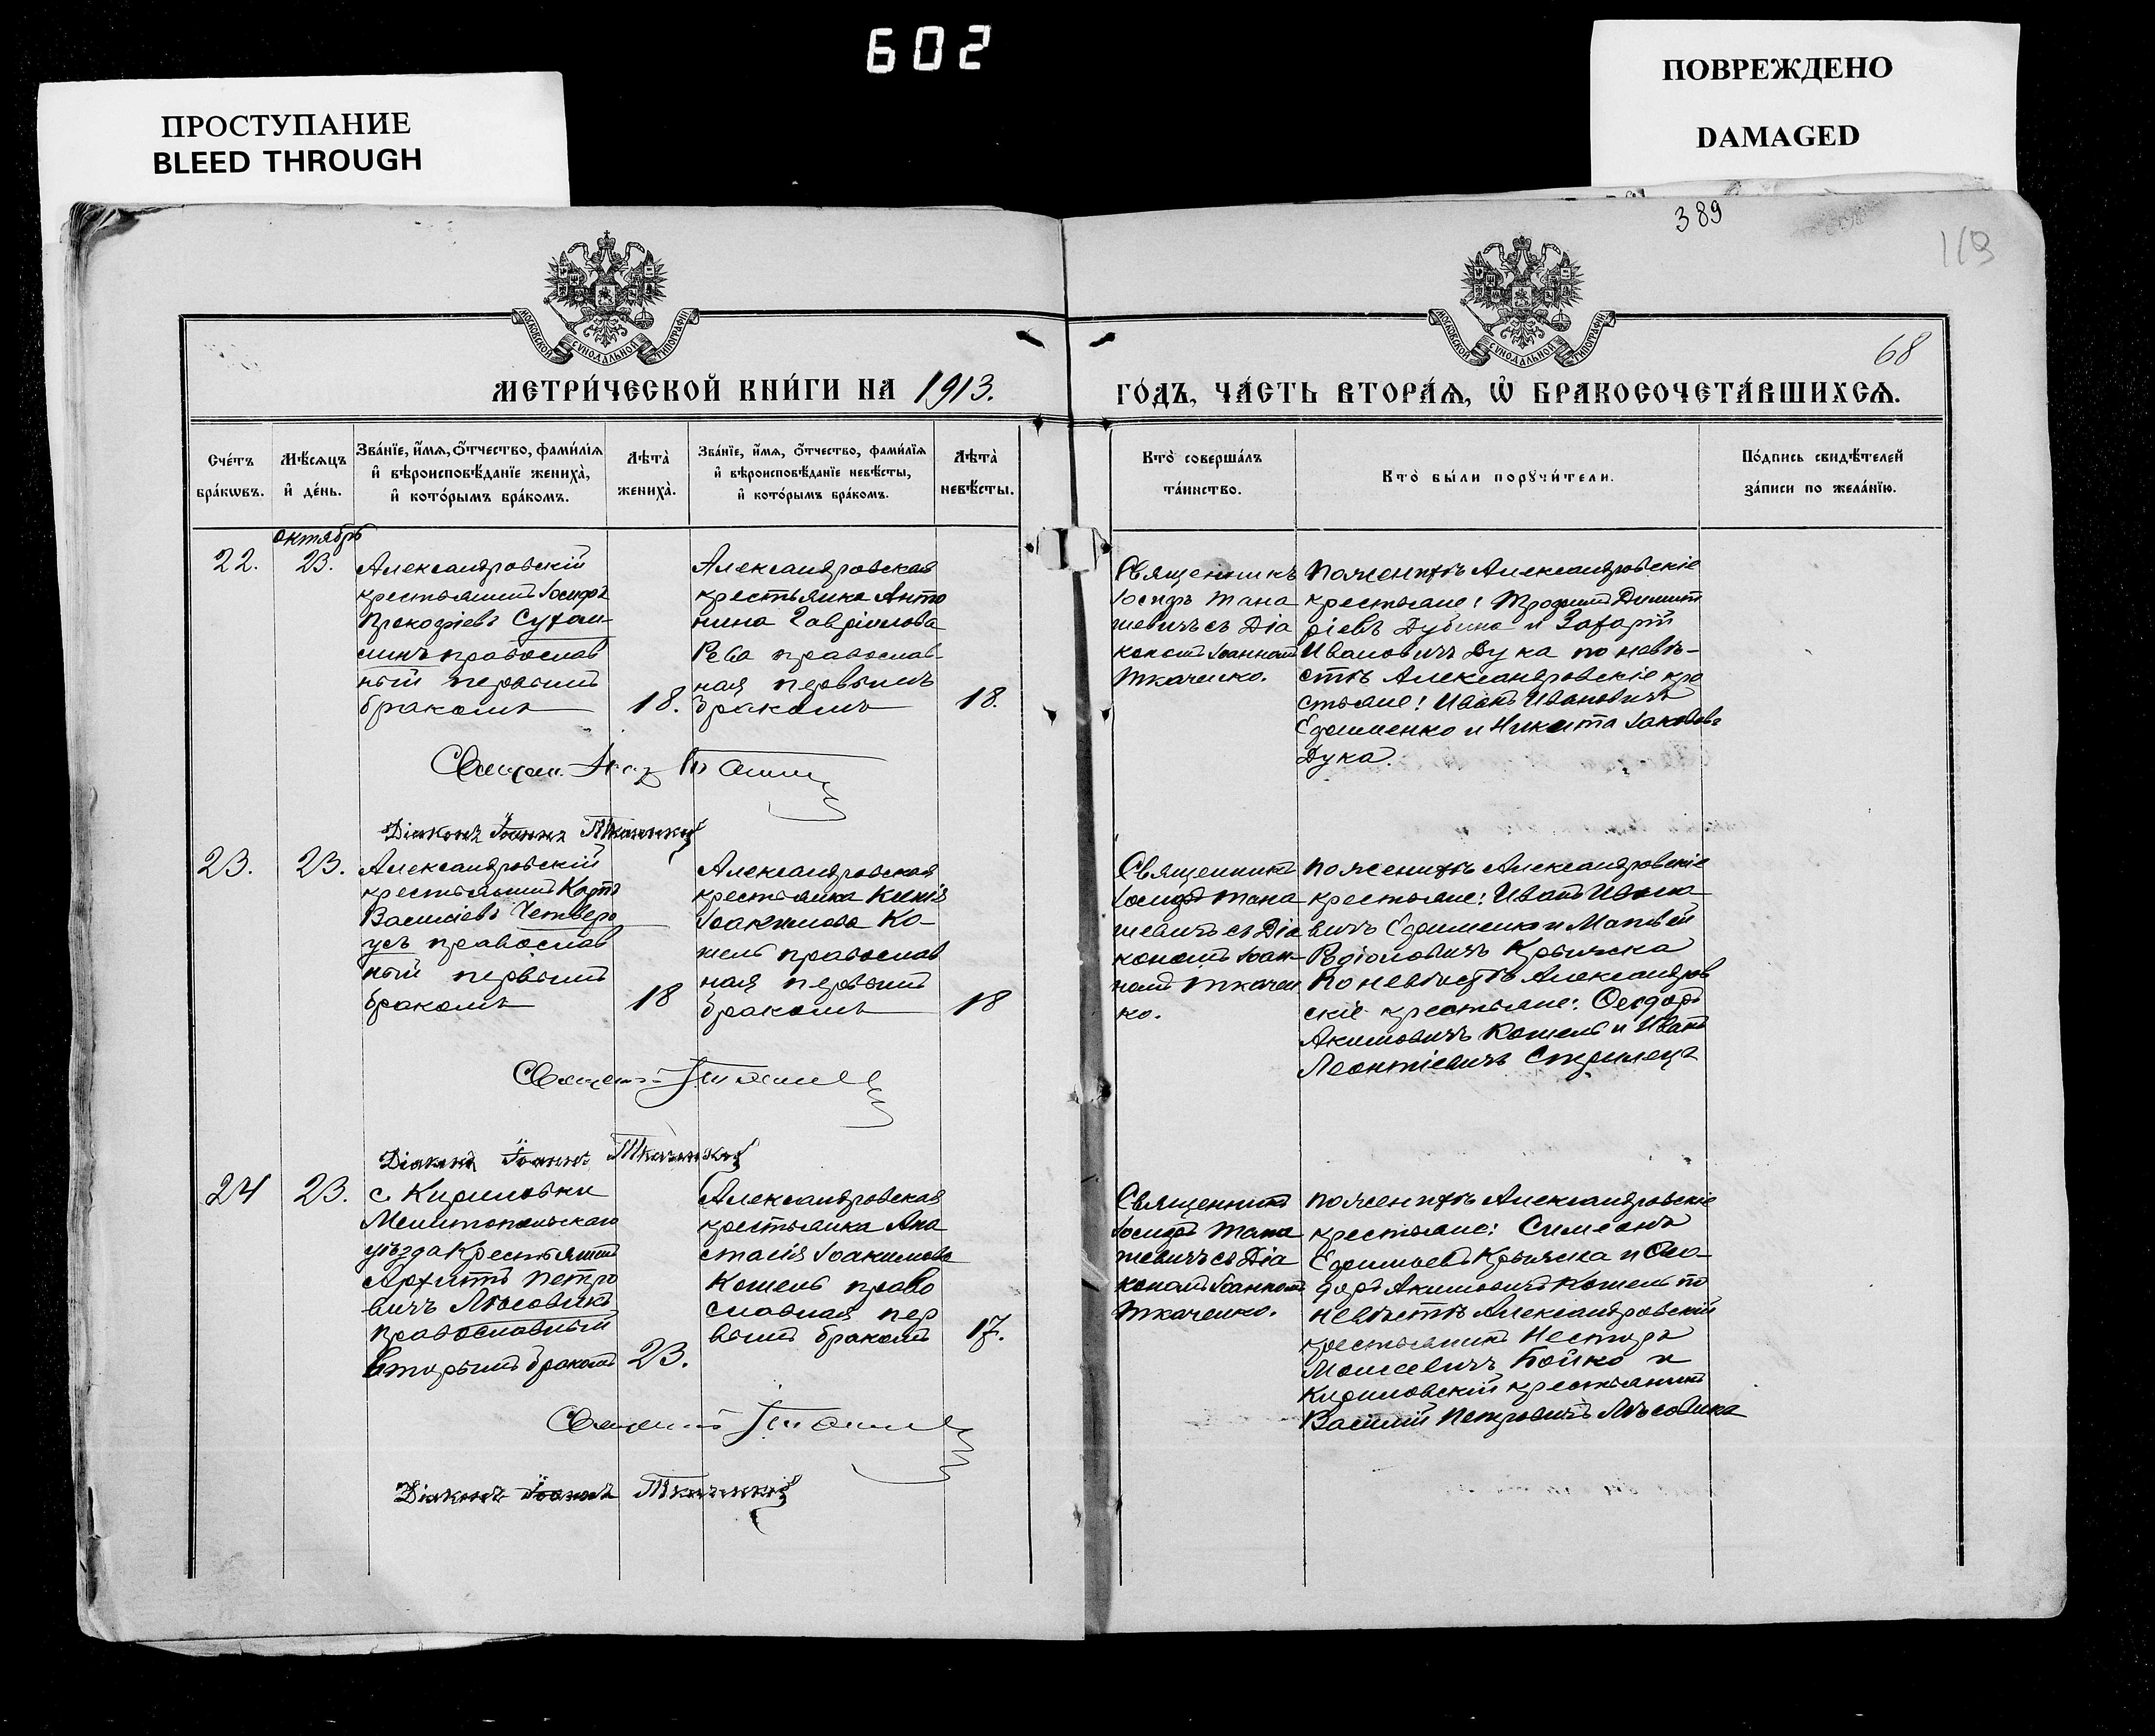 602
ПРОСТУПАНИЕ
BLEED THROUGH
ПОВРЕЖДЕНО
DAMAGED
389
68
МОСКОВСКОЙ СѴНОДАЛЬНОЙ ТИПОГРАФІИ
МОСКОВСКОЙ СѴНОДАЛЬНОЙ ТИПОГРАФІИ
МЕТРИ́ЧЕСКОЙ КНИ́ГИ НА 1913.
ГО́ДЪ, ЧА́СТЬ ВТОРА́Я, Ѡ БРАКОСОЧЕТА́ВШИХСЯ.
Сче́тъ
бра́кѡвъ.
Мѣ́сяцъ
и де́нь.
Зва́нїе, и́мя, ѻ҆́тчество, фами́лїя
и вѣроисповѣ́данїе жениха̀,
и кото́рымъ бра́комъ.
Лѣ́та̀
жениха̀.
Зва́нїе, и́мя, ѻ҆́тчество, фами́лїя
и вѣроисповѣ́данїе невѣ́сты,
и кото́рымъ бра́комъ.
Лѣ́та̀
невѣ́сты.
Кто̀ соверша́лъ
та́инство.
Кто̀ бы́ли порꙋчи́тели.
По́дпись свидѣ́телей
за́писи по жела́нїю.
октябрь
22.
23.
Александровскій
крестьянинъ Іосифъ
Прокофіевъ
православ
ный первымъ
бракомъ
18.
Александровская
крестьянка Анто
нина Гавріилова
Рева православ-
ная первымъ
бракомъ
18.
Священникъ
Іосифъ Тана
шевичъ съ Діа
кономъ Іоанномъ
Ткаченко.
По женихѣ Александровскіе
крестьяне: Трофимъ Димит
ріевъ Дубина и Захарій
Ивановичъ Дука по невѣ-
стѣ Александровскіе кре
стьяне: Иванъ Ивановичъ
Ефименко и Никита Іаковъ
Дука.
Діаконъ Іоаннъ Ткаченко
23.
23.
Александровскій
крестьянинъ Карпъ
Василіевъ Четверо
усъ православ
ный первымъ
бракомъ
18
Александровская
крестьянка Ксенія
Іоакимова Ко-
шель православ
ная первымъ
бракомъ
18
Священникъ
Іосифъ Тана
шевичъ съ Діа
кономъ Іоан-
номъ Ткачен
ко.
По женихѣ Александровскіе
крестьяне: Иванъ Ивано
вичъ Ефименко и Матвѣй
Родіоновичъ
По невѣстѣ Александров
скіе крестьяне: Ѳеодоръ
Акимовичъ Кошель и Иванъ
Леонтіевичъ Стрилецъ
Діаконъ Іоаннъ Ткаченко
24
23.
с. Кириловки
Мелитопольскаго
уѣзда крестьянинъ
Архипъ Петро
вичъ Лѣсовикъ
православный
вторымъ бракомъ
23.
Александровская
крестьянка Ана
стасія Іоакимова
Кошель право
славная пер
вымъ бракомъ
17.
Священникъ
Іосифъ Тана
шевичъ съ Діа
кономъ Іоанномъ
Ткаченко.
По женихѣ Александровскіе
крестьяне: Симеонъ
Ефимьевъ и Ѳео-
доръ Акимовичъ Кошель по
невѣстѣ Александровскій
крестьянинъ Несторъ
Моисеевичъ Бойко и
Кириловскій крестьянинъ
Василій Петровичъ Лѣсовика
Діаконъ Іоаннъ Ткаченко